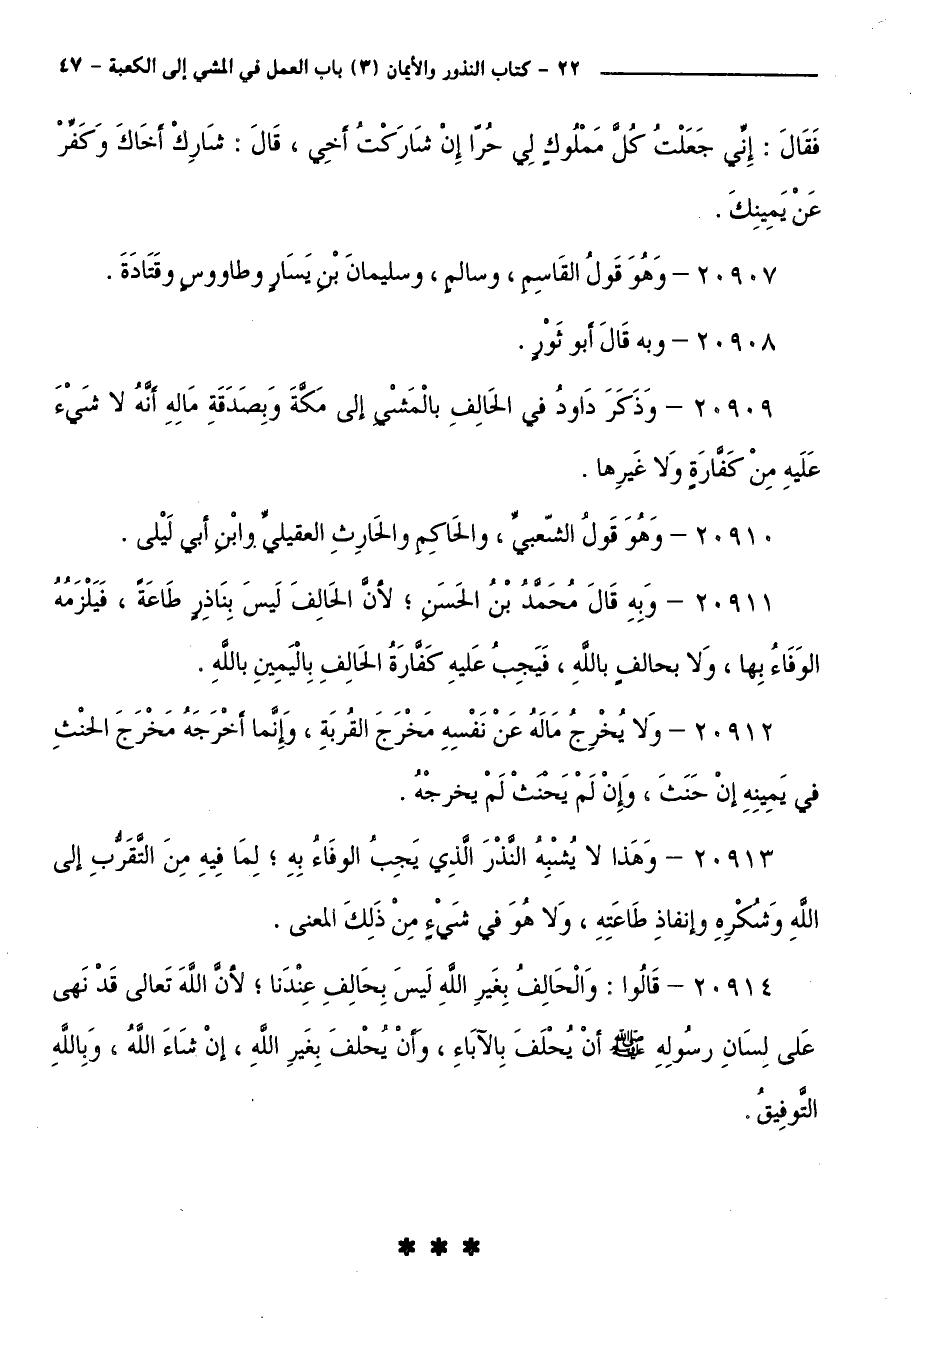 ٢٢ - كتاب النذور والأيمان (٣) باب العمل في المشي إلى الكعبة - ٤٧
فَقَالَ : إِنِّي جَعَلْتُ كُلَّ مَمْلُوكٍ لِي حُرّا إِنْ شَارَكتُ أَخِي ، قَالَ : شَارِكْ أَخَاكَ وَكَفِّرْ
عَنْ يَمِينِكَ .
٢٠٩٠٧ - وَهُوَ قَولُ القَاسِمِ ، وسالمٍ ، وسليمانَ بْنِ يَسَارٍ وطاووسٍ وقَتَادَةَ .
٢٠٩٠٨ - وبه قَالَ أَبو ثَوْرٍ .
٢٠٩٠٩ - وَذَكَرَ دَاودُ في الحَالِفِ بالْمَشْيِ إلى مَكَّةَ وَبِصَدَقَةِ مَالِهِ أَنَّهُ لا شَيْءَ
عَلَيهِ مِنْ كَفَّارَةٍ وَلا غَيرِها .
٢٠٩١٠ - وَهُوَ قَولُ الشّعبيِّ ، والحَاكِمِ والحَارِثِ العقيليِّ وابْنِ أبي لَيْلى .
٢٠٩١١ - وَبِهِ قَالَ مُحَمَّدُ بْنُ الحَسَنِ ؛ لأنَّ الحَالِفَ لَيسَ بِنَاذِرٍ طَاعَةً ، فَيَلْزَمُهُ
الوَفَاءُ بِها ، وَلا بحالفٍ باللَّهِ ، فَيَجِبُ عَليهِ كَفَّارَةُ الحَالِفِ بِالْيَمِينِ باللَّهِ .
٢٠٩١٢ - وَلا يُخْرِجُ مَالَهُ عَنْ نَفْسِهِ مَخْرَجَ القُربَةِ ، وَإِنَّما أَخْرَجَهُ مَخْرَجَ الحنْثِ
في يَمِينِهِ إِنْ حَنَثَ ، وَإِنْ لَمْ يَحْنَثْ لَمْ يخرجْهُ .
٢٠٩١٣ - وَهَذا لا يُشْبِهُ النَّذْرَ الَّذِي يَجِبُ الوفَاءُ بِهِ ؛ لِمَا فِيهِ مِنَ التَّقَرُّبِ إلى
اللَّهِ وَشُكْرِهِ وإنفاذِ طَاعَتِهِ ، وَلا هُوَ في شَيْءٍ مِنْ ذَلِكَ المعنى .
٢٠٩١٤ - قَالُوا : وَالْحَالِفُ بِغَيرِ اللَّهِ لَيسَ بِحَالِفٍ عِنْدَنَا ؛ لأنَّ اللَّهَ تَعالى قَدْ نَهى
عَلى لِسَانِ رسُولِهِ ﷺ أَنْ يُحْلَفَ بِالآبَاءِ ، وَأَنْ يُحْلفَ بِغَيرِ اللَّهِ ، إِنْ شَاءَ اللَّهُ ، وَبِاللَّهِ
التَّوفِيقُ .
* * *